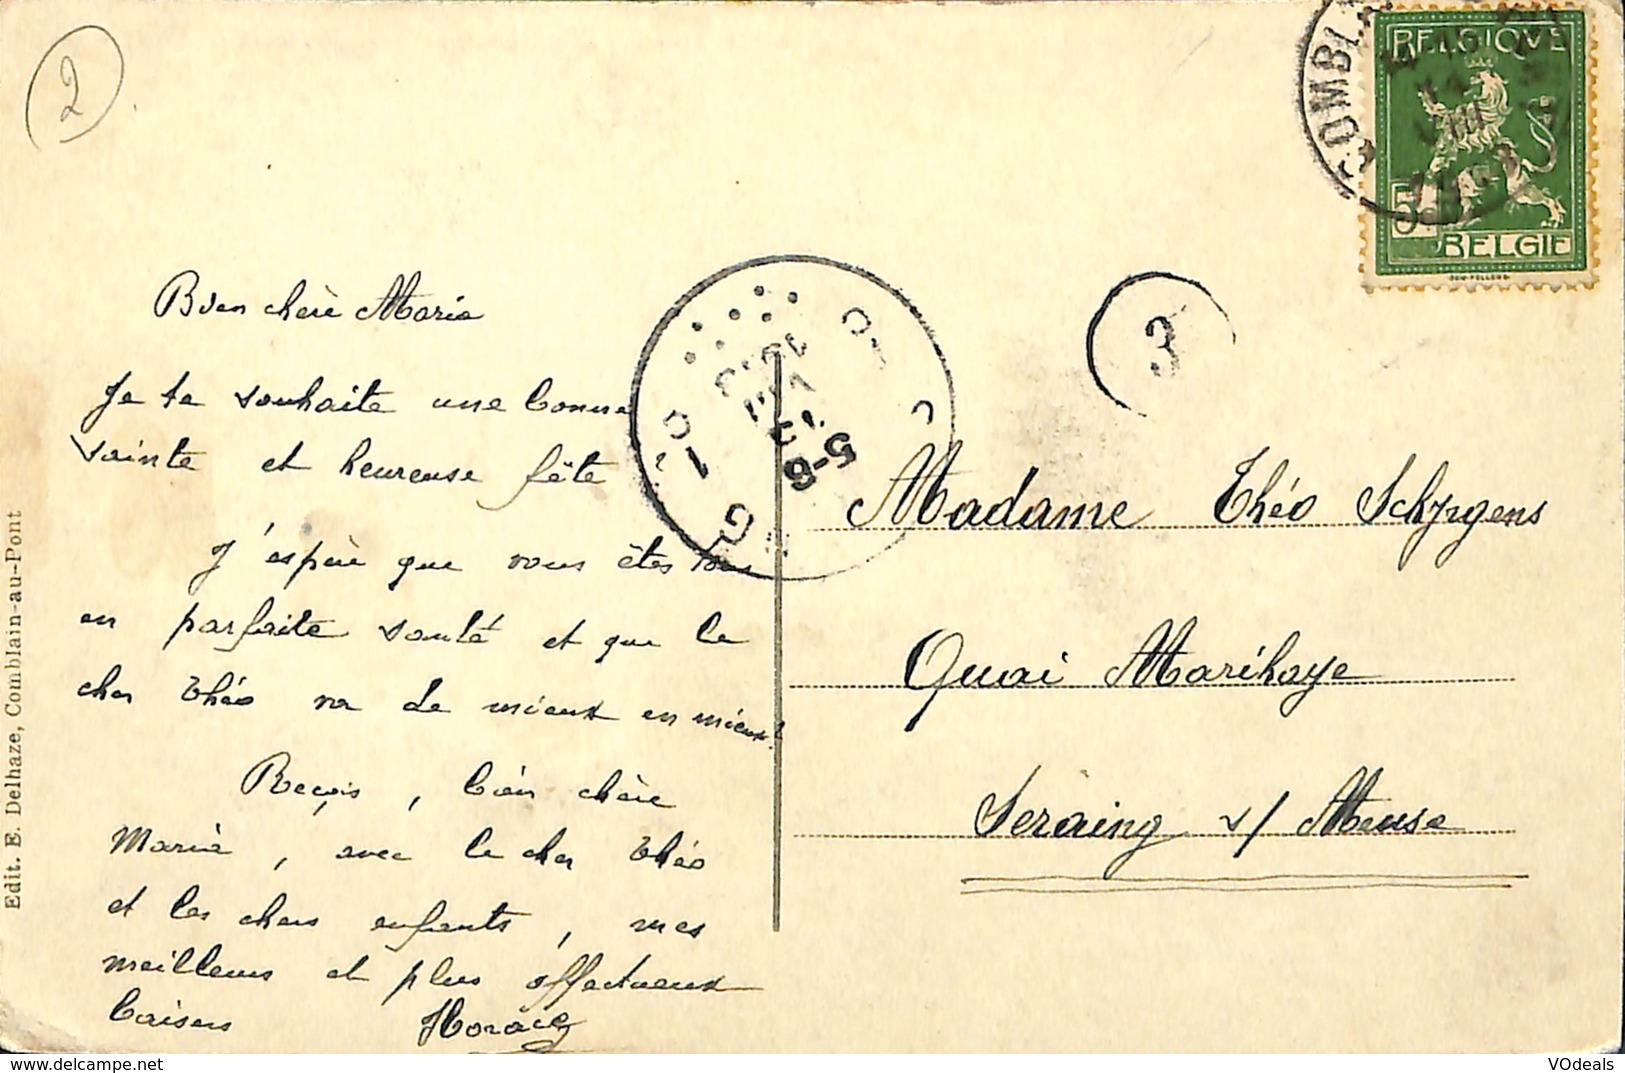 2
COMBLA
BELGIQUE
5
BELGIË
3
5-6
13
VIII
1
Bien chère Maria
Je te souhaite une bonne
sainte et heureuse fête !
J'espère que vous êtes tous
en parfaite santé et que le
cher Théo va de mieux en mieux!
Reçois, bien chère
Maria, avec le cher Théo
et les chers enfants, mes
meilleurs et plus affectueux
baisers Horace
Madame Théo Schyrgens
Quai Marihaye
Seraing s/ Meuse
Edit. E. Delhaze, Comblain-au-Pont
VOdeals